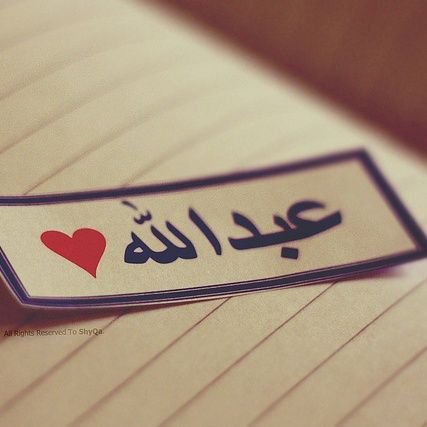 عبدالله
All Rights Reserved To ShyQa.